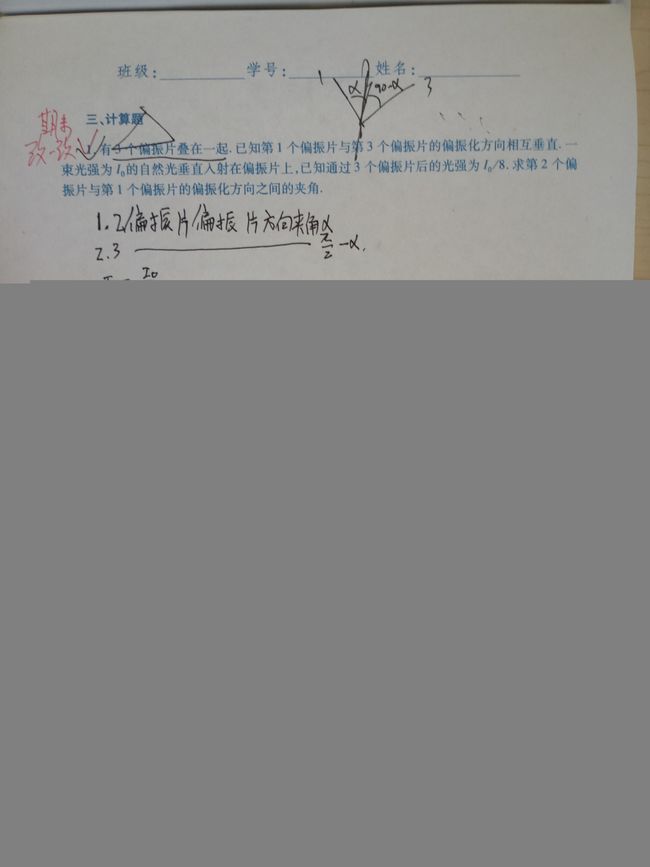 班级: 学号: 姓名:
1 α 90-α 3
三、计算题
期末
改一改
1. 有 3 个偏振片叠在一起. 已知第 1 个偏振片与第 3 个偏振片的偏振化方向相互垂直. 一
束光强为 I₀的自然光垂直入射在偏振片上, 已知通过 3 个偏振片后的光强为 I₀/8. 求第 2 个偏
振片与第 1 个偏振片的偏振化方向之间的夹角.
1.2偏振片偏振片方向夹角α
2.3 π/2-α.
I₀